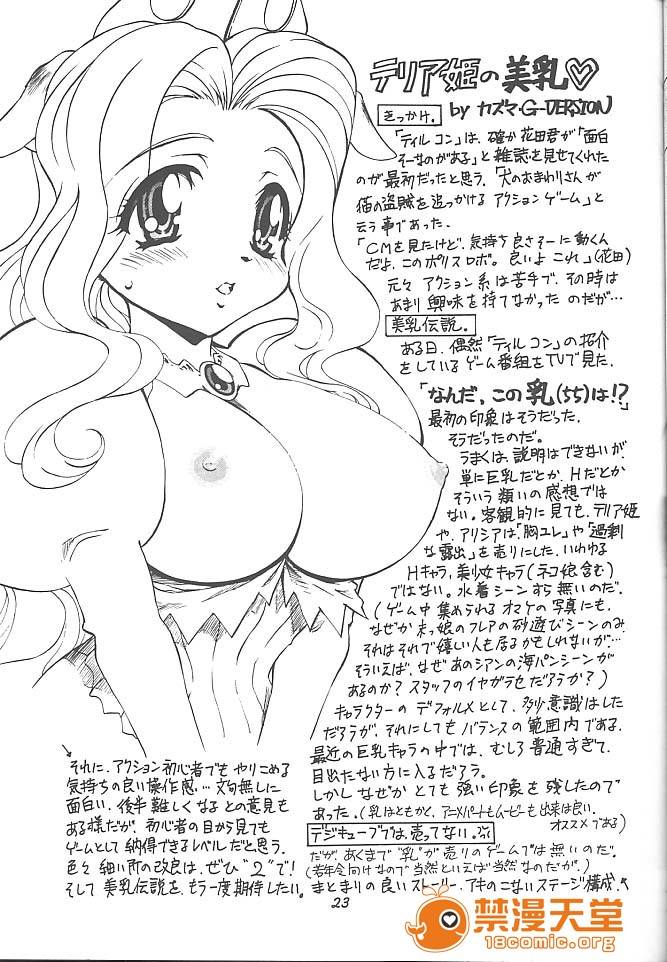 テリア姫の美乳♡
by カズマ・G-VERSION
きっかけ。
「テイルコン」は、確か花田君が「面白
そーなのがある」と雑誌を見せてくれた
のが最初だったと思う。「犬のおまわりさんが
猫の盗賊を追っかけるアクションゲーム」と
云う事であった。
「CMを見たけど、気持ち良さそーに動くん
だよ、このポリスロボ。良いよこれ」(花田)
元々アクション系は苦手で、その時は
あまり興味を持てなかったのだが…
美乳伝説。
ある日、偶然「テイルコン」の紹介
をしているゲーム番組をTVで見た。
「なんだ、この乳(ちち)は!?」
最初の印象はそうだった。
そうだったのだ。
うまくは、説明はできないが、
単に巨乳だとか、Hだとか
そういう類いの感想では
ない。客観的に見ても、テリア姫
や、アリシアは「胸ユレ」や「過剰
な露出」を売りにした、いわゆる
Hキャラ、美少女キャラ(ネコ娘含む)
ではない。水着シーンすら無いのだ。
(ゲーム中集められるオマケの写真にも、
なぜか末っ娘のフレアの砂遊びシーンのみ。
それはそれで嬉しい人も居るかもしれないが…
そういえば、なぜあのシアンの海パンシーンが
あるのか?スタッフのイヤガラセだろうか?)
キャラクターのデフォルメとして、多少意識はした
だろうが、それにしてもバランスの範囲内である。
最近の巨乳キャラの中では、むしろ普通すぎて、
目立たない方に入るだろう。
しかしなぜかとても強い印象を残したので
あった。(乳はともかく、アニメパートもムービーも出来は良い。
オススメである)
デジキューブでは売ってない。
だが、あくまで"乳"が売りのゲームでは無いのだ。
(若年令向けなので当然といえば当然なのだが。)
まとまりの良いストーリー、アキのこないステージ構成、
それに、アクション初心者でもやりこめる
気持ちの良い操作感…文句無しに
面白い。後半難しくなるとの意見も
ある様だが、初心者の目から見ても
ゲームとして納得できるレベルだと思う。
色々細い所の改良は、ぜひ"2"で!
そして美乳伝説を、もう一度期待したい。
23
禁漫天堂
18comic.org